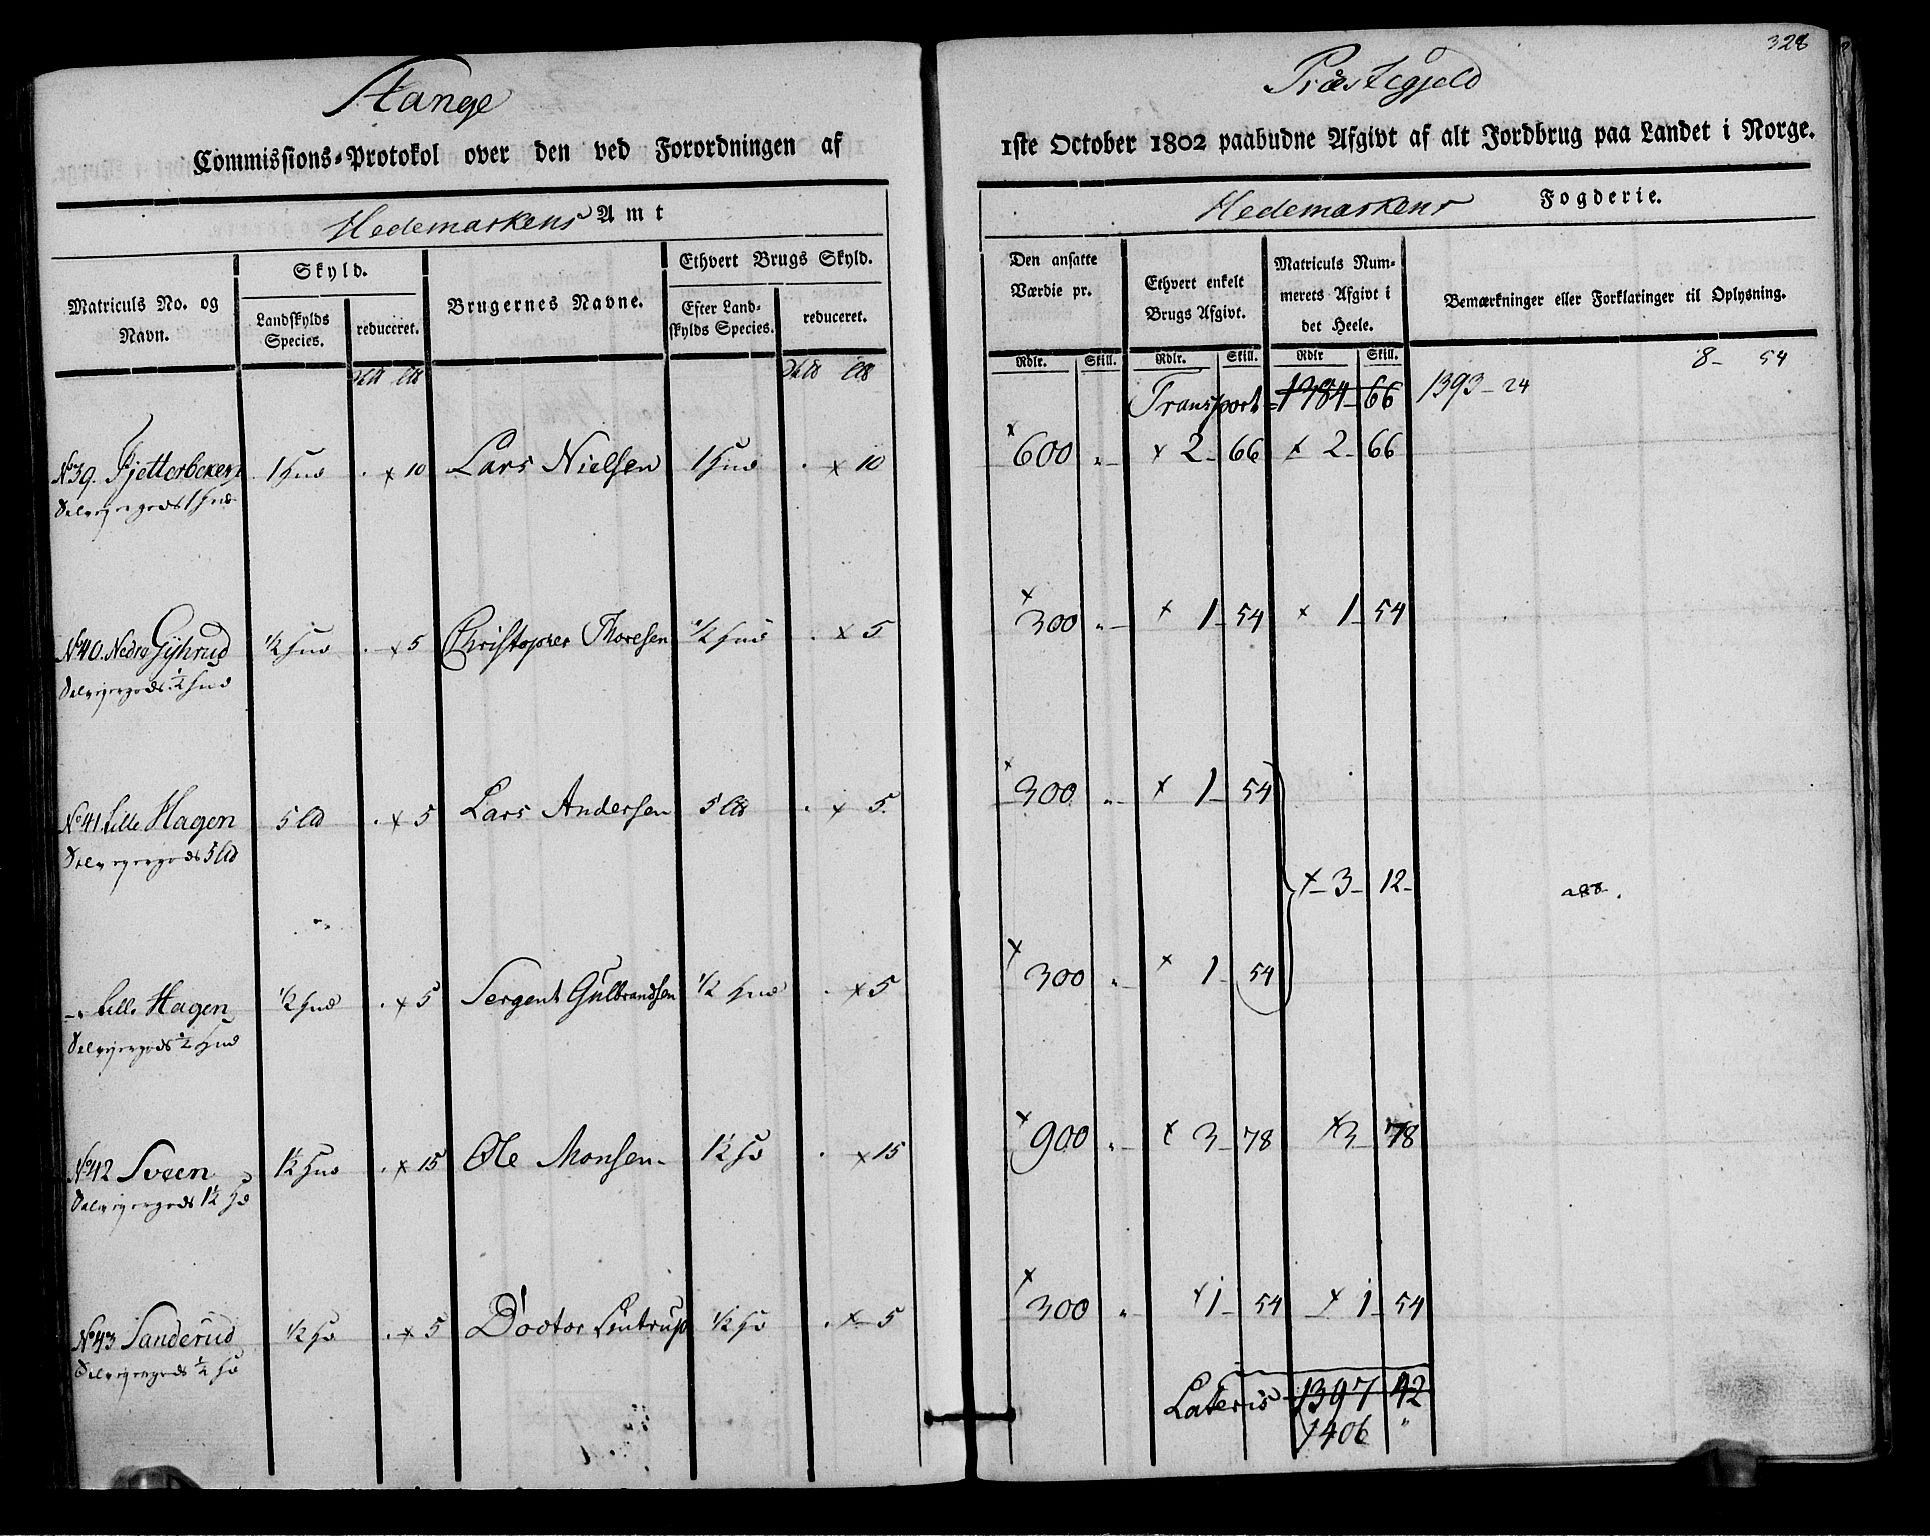 328
Stange Præstegjeld
Commissions-Protokol over den ved Forordningen af 1ste October 1802 paabudne Afgivt af alt Jordbrug paa Landet i Norge.
Hedemarkens Amt Hedemarkens Fogderie.
Matriculs No. og Navn.
Skyld.
Landskylds Species.
reduceret.
Brugernes Navne.
Ethvert Brugs Skyld.
Efter Landskylds Species.
reduceret.
Den ansatte Værdie pr.
Rdlr. Skill.
Ethvert enkelt Brugs Afgivt.
Rdlr. Skill.
Matriculs Nummerets Afgivt i det Heele.
Rdlr Skill.
Bemærkninger eller Forklaringer til Oplysning.
8 - 54
Transport 1384 - 66 1393 - 24
No 39. 1 Hud . x 10 Lars Nielsen 1 Hud . x 10 x 600 " - x 2 - 66 x 2 - 66
1 Hud
No 40. Nedre Gyhrud 1/2 Hud . x 5 Christopher Thoresen 1/2 Hud . x 5 x 300 " - x 1 - 54 x 1 - 54
1/2 Hud
No 41. Lille Hagen 5 . x 5 Lars Andersen 5 . x 5. x 300 " - x 1 - 54
5
x - 3 - 12 -
-. Lille Hagen 1/2 Hud . x 5 Sergent Gulbrandsen 1/2 Hud . x 5 x 300 " - x 1 - 54
1/2 Hud
No 42 Sveen 1 1/2 Hud . x 15 Ole Monsen 1 1/2 Hd . x 15 x 900 " - x 3 - 78 x 3 - 78
1 1/2 Hd
No 43 Sanderud 1/2 Hd . x 5 Doctor Lentrup 1/2 Hd . x 5 x 300 " x 1 - 54 x 1 - 54
1/2 Hd
Lateris 1397 42
1406 "